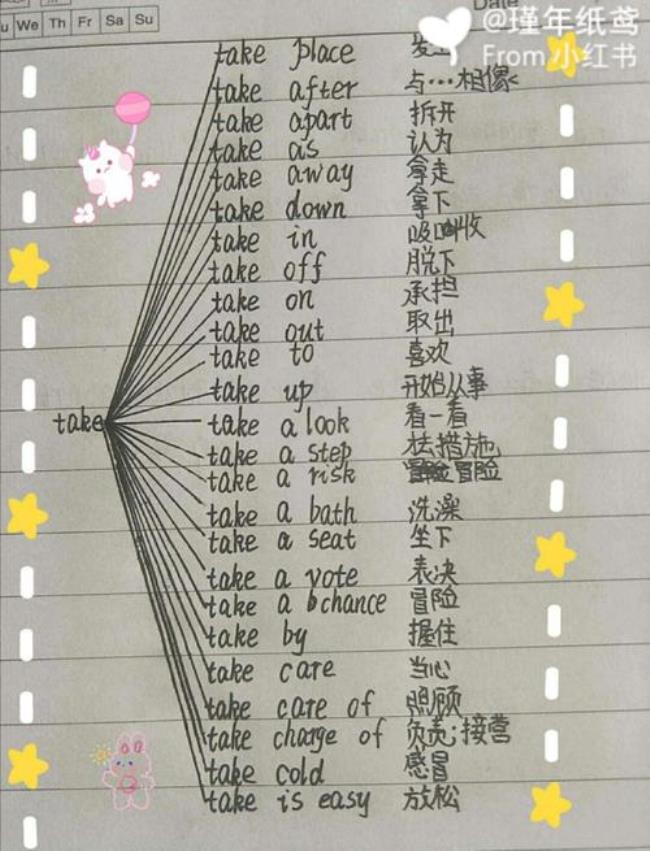 Date
u We Th Fr Sa Su
@瑾年纸鸢
From 小红书
take
take place 发生
take after 与…相像
take apart 拆开
take as 认为
take away 拿走
take down 拿下
take in 吸收
take off 脱下
take on 承担
take out 取出
take to 喜欢
take up 开始从事
take a look 看一看
take a step 措施
take a risk 冒险
take a bath 洗澡
take a seat 坐下
take a vote 表决
take a chance 冒险
take by 握住
take care 当心
take care of 照顾
take charge of 负责;接营
take cold 感冒
take is easy 放松